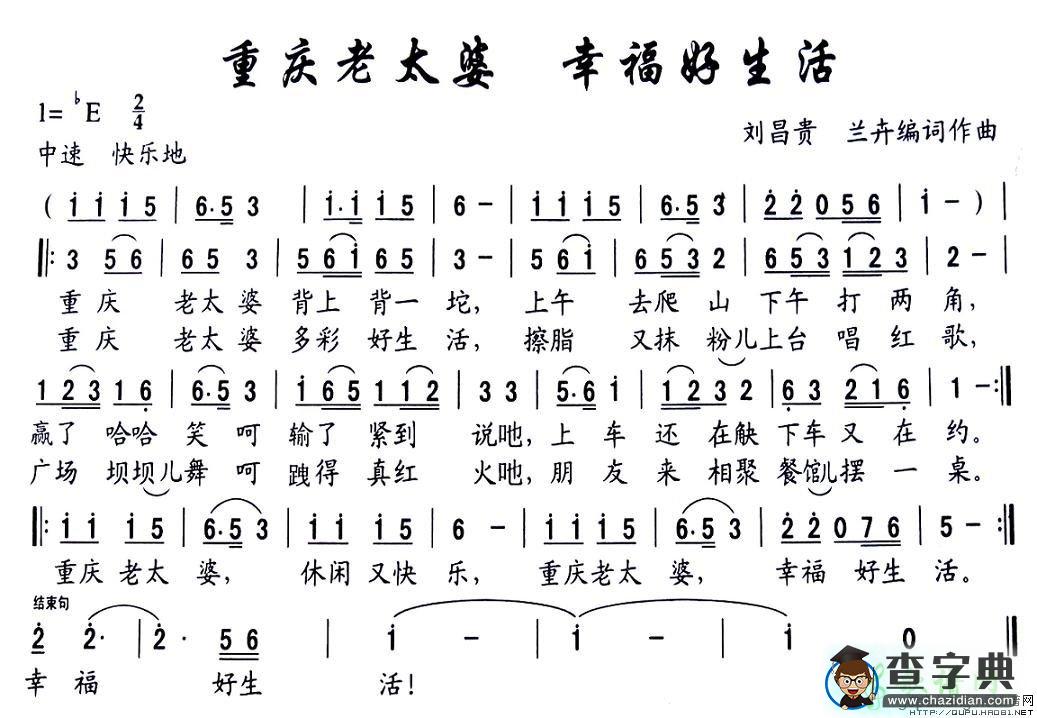 重庆老太婆 幸福好生活
1=♭E 2/4
刘昌贵 兰卉编词作曲
中速 快乐地
( i i i 5 | 6·5 3 | i·i i 5 | 6 – | i i i 5 | 6·5 3 | 2 2 0 5 6 | i – ) |
‖: 3 5 6 | 6 5 3 | 5 6 i 6 5 | 3 – | 5 6 i | 6 5 3 2 | 6 5 3 1 2 3 | 2 – |
重庆 老太婆 背上 背一 坨, 上午 去爬 山 下午 打 两 角,
重庆 老太婆 多彩 好生 活, 擦脂 又抹 粉儿上台 唱 红 歌,
1 2 3 1 6 | 6·5 3 | i 6 5 1 1 2 | 3 3 | 5·6 i | 1 2 3 2 | 6 3 2 1 6 | 1 – :‖
赢了 哈哈 笑 呵 输了 紧到 说吔, 上 车 还 在觖 下车 又 在 约。
广场 坝坝儿舞 呵 跩得 真红 火吔, 朋 友 来 相聚 餐馆儿摆 一 桌。
‖: i i i 5 | 6·5 3 | i i i 5 | 6 – | i i i 5 | 6·5 3 | 2 2 0 7 6 | 5 – :‖
重庆 老太 婆, 休闲 又快 乐, 重庆老太 婆, 幸福 好生 活。
结束句
2 2· | 2· 5 6 | i – | i – | i 0 ‖
幸 福 好生 活!
查字典
www.chazidian.com
HTTP://QUPU.HAO81.NET